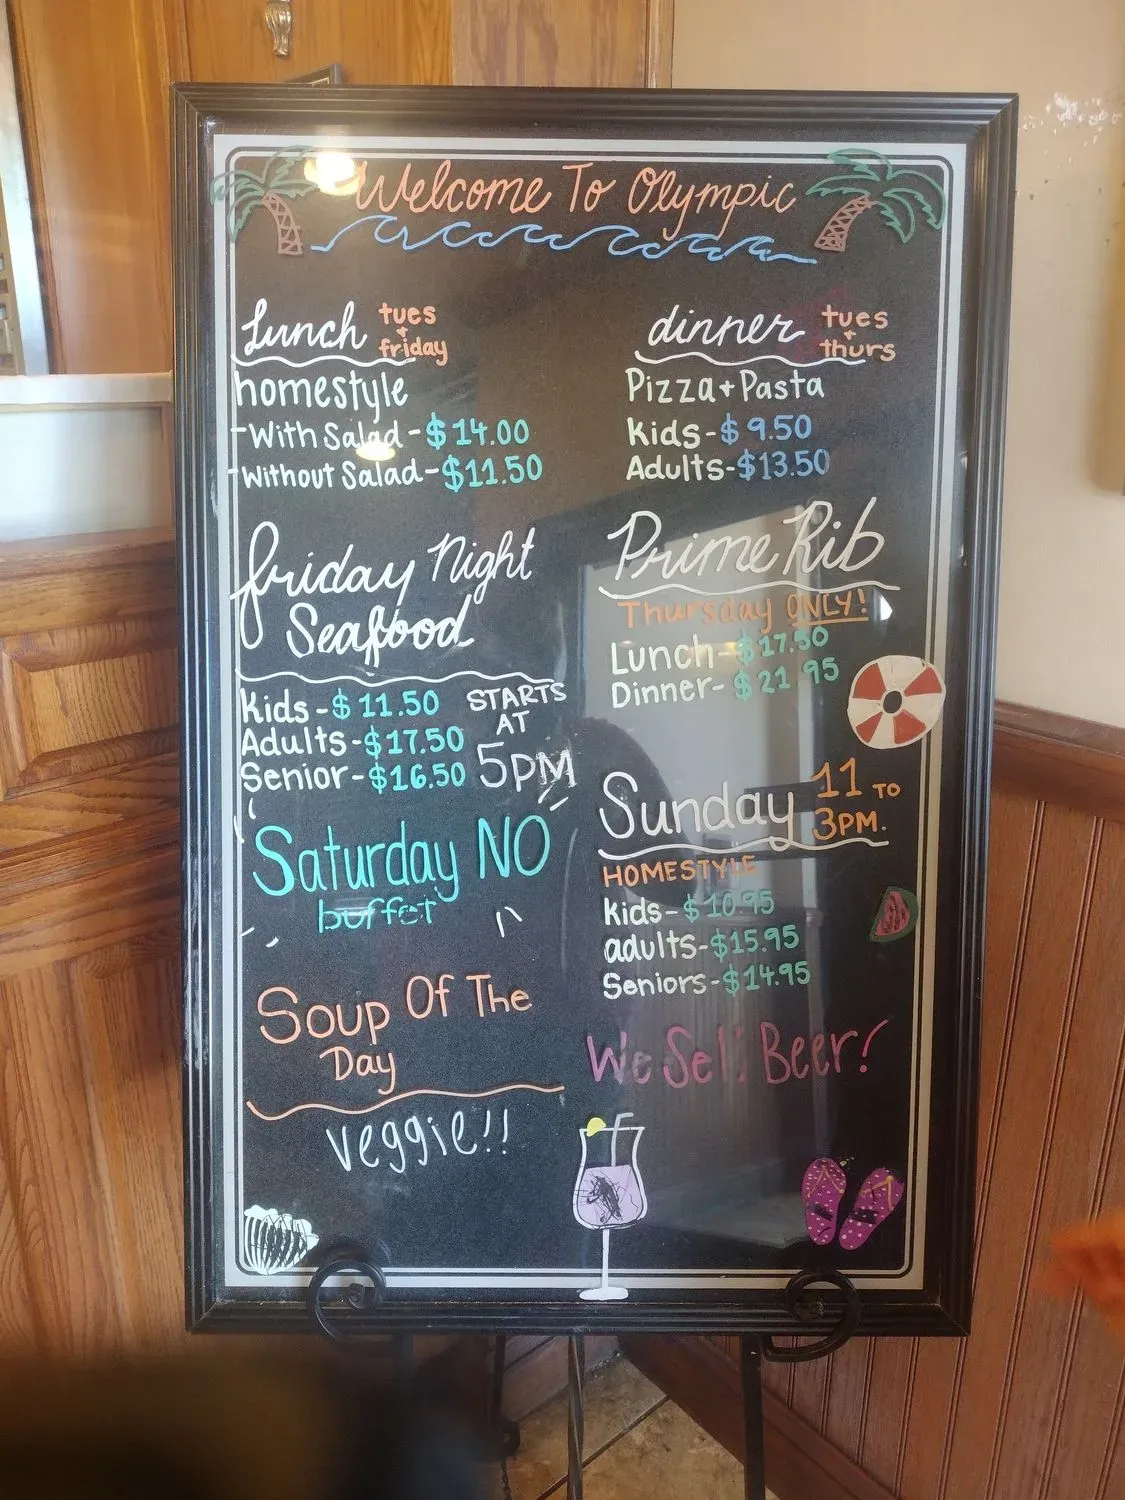 Welcome To Olympic
Lunch tues + friday
homestyle
-With Salad-$14.00
-Without Salad-$11.50
friday Night
Seafood
Kids-$11.50
Adults-$17.50
Senior-$16.50
STARTS
AT
5PM
Saturday NO
buffet
Soup Of The
Day
veggie!!
dinner tues + thurs
Pizza+Pasta
Kids-$9.50
Adults-$13.50
Prime Rib
Thursday ONLY!
Lunch-$17.50
Dinner-$21.95
Sunday 11 TO 3PM.
HOMESTYLE
kids-$10.95
adults-$15.95
Seniors-$14.95
We Sell Beer!